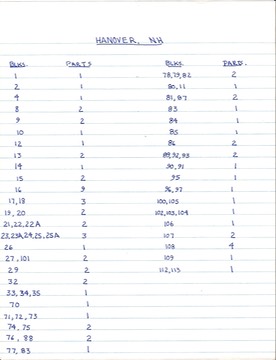 HANOVER, NH
BLKS. PARTS BLKS. PARTS.
1 1 78,79,82 2
2 1 80,11 1
4 1 81,87 2
8 2 83 1
9 2 84 1
10 1 85 1
12 1 86 2
13 2 89,92,93 2
14 1 90,91 1
15 2 95 1
16 9 96,97 1
17,18 3 100,105 1
19,20 2 102,103,104 1
21,22,22A 2 106 1
23,23A,24,25,25A 3 107 2
26 1 108 4
27,101 2 109 1
29 2 112,113 1
32 2
33,34,35 1
70 1
71,72,73 1
74,75 2
76,88 2
77,83 1